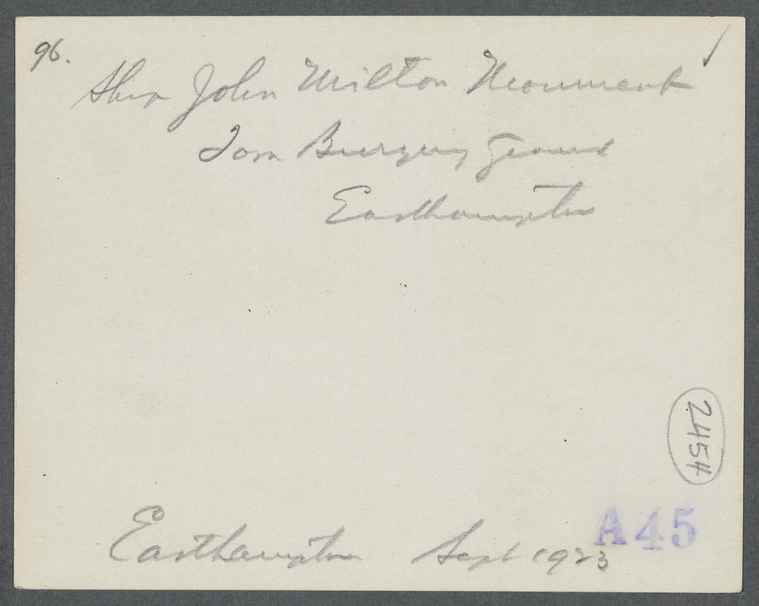 96.
Ship John Milton Monument
Burying Ground
Easthampton
2454
A45
Easthampton Sept 1923